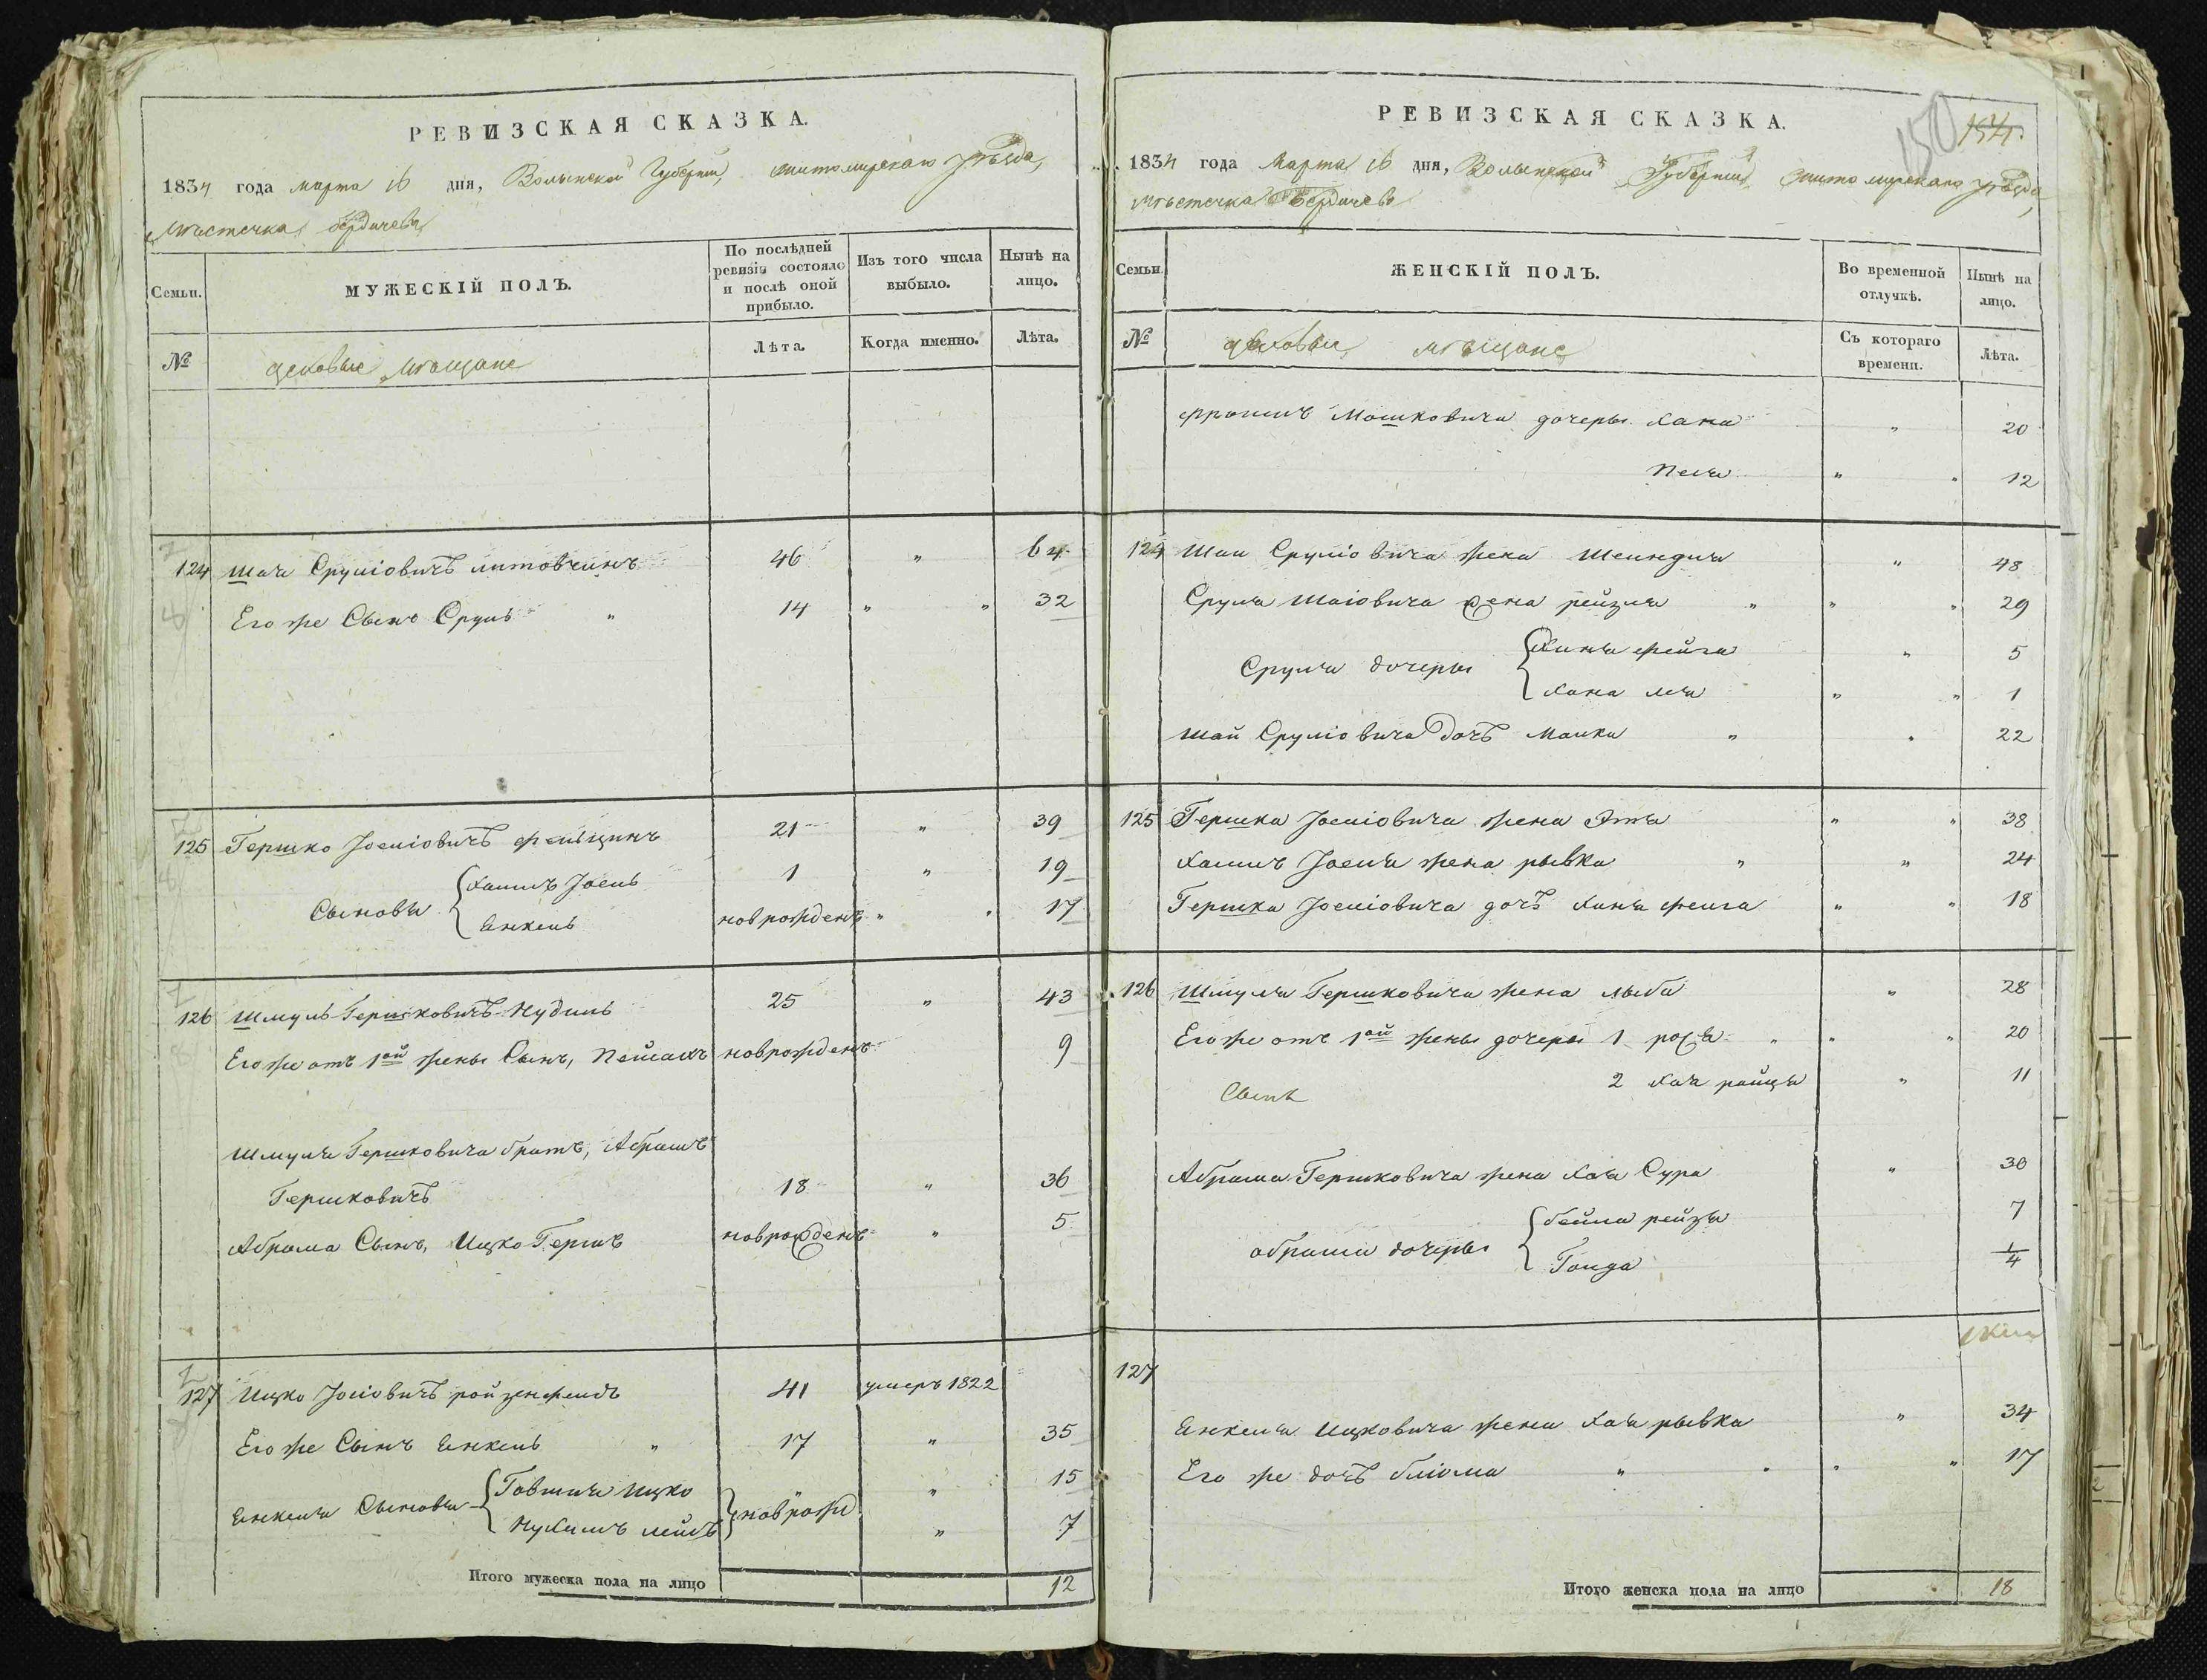 РЕВИЗСКАЯ СКАЗКА.
1834 года марта 16 дня, Волынской Губерніи, житомирскаго уѣзда,
мѣстечка бердичева
Семьи. МУЖЕСКІЙ ПОЛЪ. По послѣдней ревизіи состояло и послѣ оной прибыло. Изъ того числа выбыло. Нынѣ на лицо.
№ цеховые мѣщане Лѣта. Когда именно. Лѣта.
124 Шая Сруліовичъ литовчинъ 46 " 64
Его же Сынъ Сруль " 14 " " 32
125 Гершко Іосіовичъ 21 " 39
Сыновья { Хаимъ Іось 1 " 19
Янкель новрожденъ " " 17
126 Шмуль Гершковичъ Нудиль 25 " 43
Его же отъ 1ой жены Сынъ, Пейсахъ новрожденъ 9
Шмуля Гершковича братъ, Абрамъ
Гершковичъ 18 " 36
Абрама Сынъ, Ицко Гершъ новрожденъ " 5
127 Ицко Іосіовичъ ройзенфельдъ 41 умеръ 1822
Его же Сынъ Янкель " 17 " 35
Янкеля Сыновья { Говшия Ицко } новрожд " 15
Нухимъ лейбъ " 7
Итого мужеска пола на лицо 12
РЕВИЗСКАЯ СКАЗКА.
150 154.
1834 года Марта 16 дня, Волынской Губерніи житомирскаго уѣзда,
мѣстечка Бердичева
Семьи. ЖЕНСКІЙ ПОЛЪ. Во временной отлучкѣ. Нынѣ на лицо.
№ цеховые мѣщане Съ котораго времени. Лѣта.
Мошковича дочеры Хана " 20
Песя " " 12
124 Шаи Сруліовича жена Шейндля " 48
Сруля Шаіовича жена рейзля " " " 29
Сруля дочеры { Хиня фейга " 5
Хана лея " " 1
Шаи Сруліовича дочъ Малка " " 22
125 Гершка Іосіовича жена Этя " " 38
Хаимъ Іося жена рывка " " 24
Гершка Іосіовича дочъ Хиня фейга " " 18
126 Шмуля Гершковича жена лыба " 28
Его же отъ 1ой жены дочеры 1 " " " 20
2 Хая райця " 11
Сынъ
Абрама Гершковича жена Хая Сура " 30
абрама дочеры { бейла рейзя 7
Голда 1/4
127
Янкеля Ицковича жена Хая рывка " 34
Его же дочъ блюма " " " " 17
Итого женска пола на лицо 18